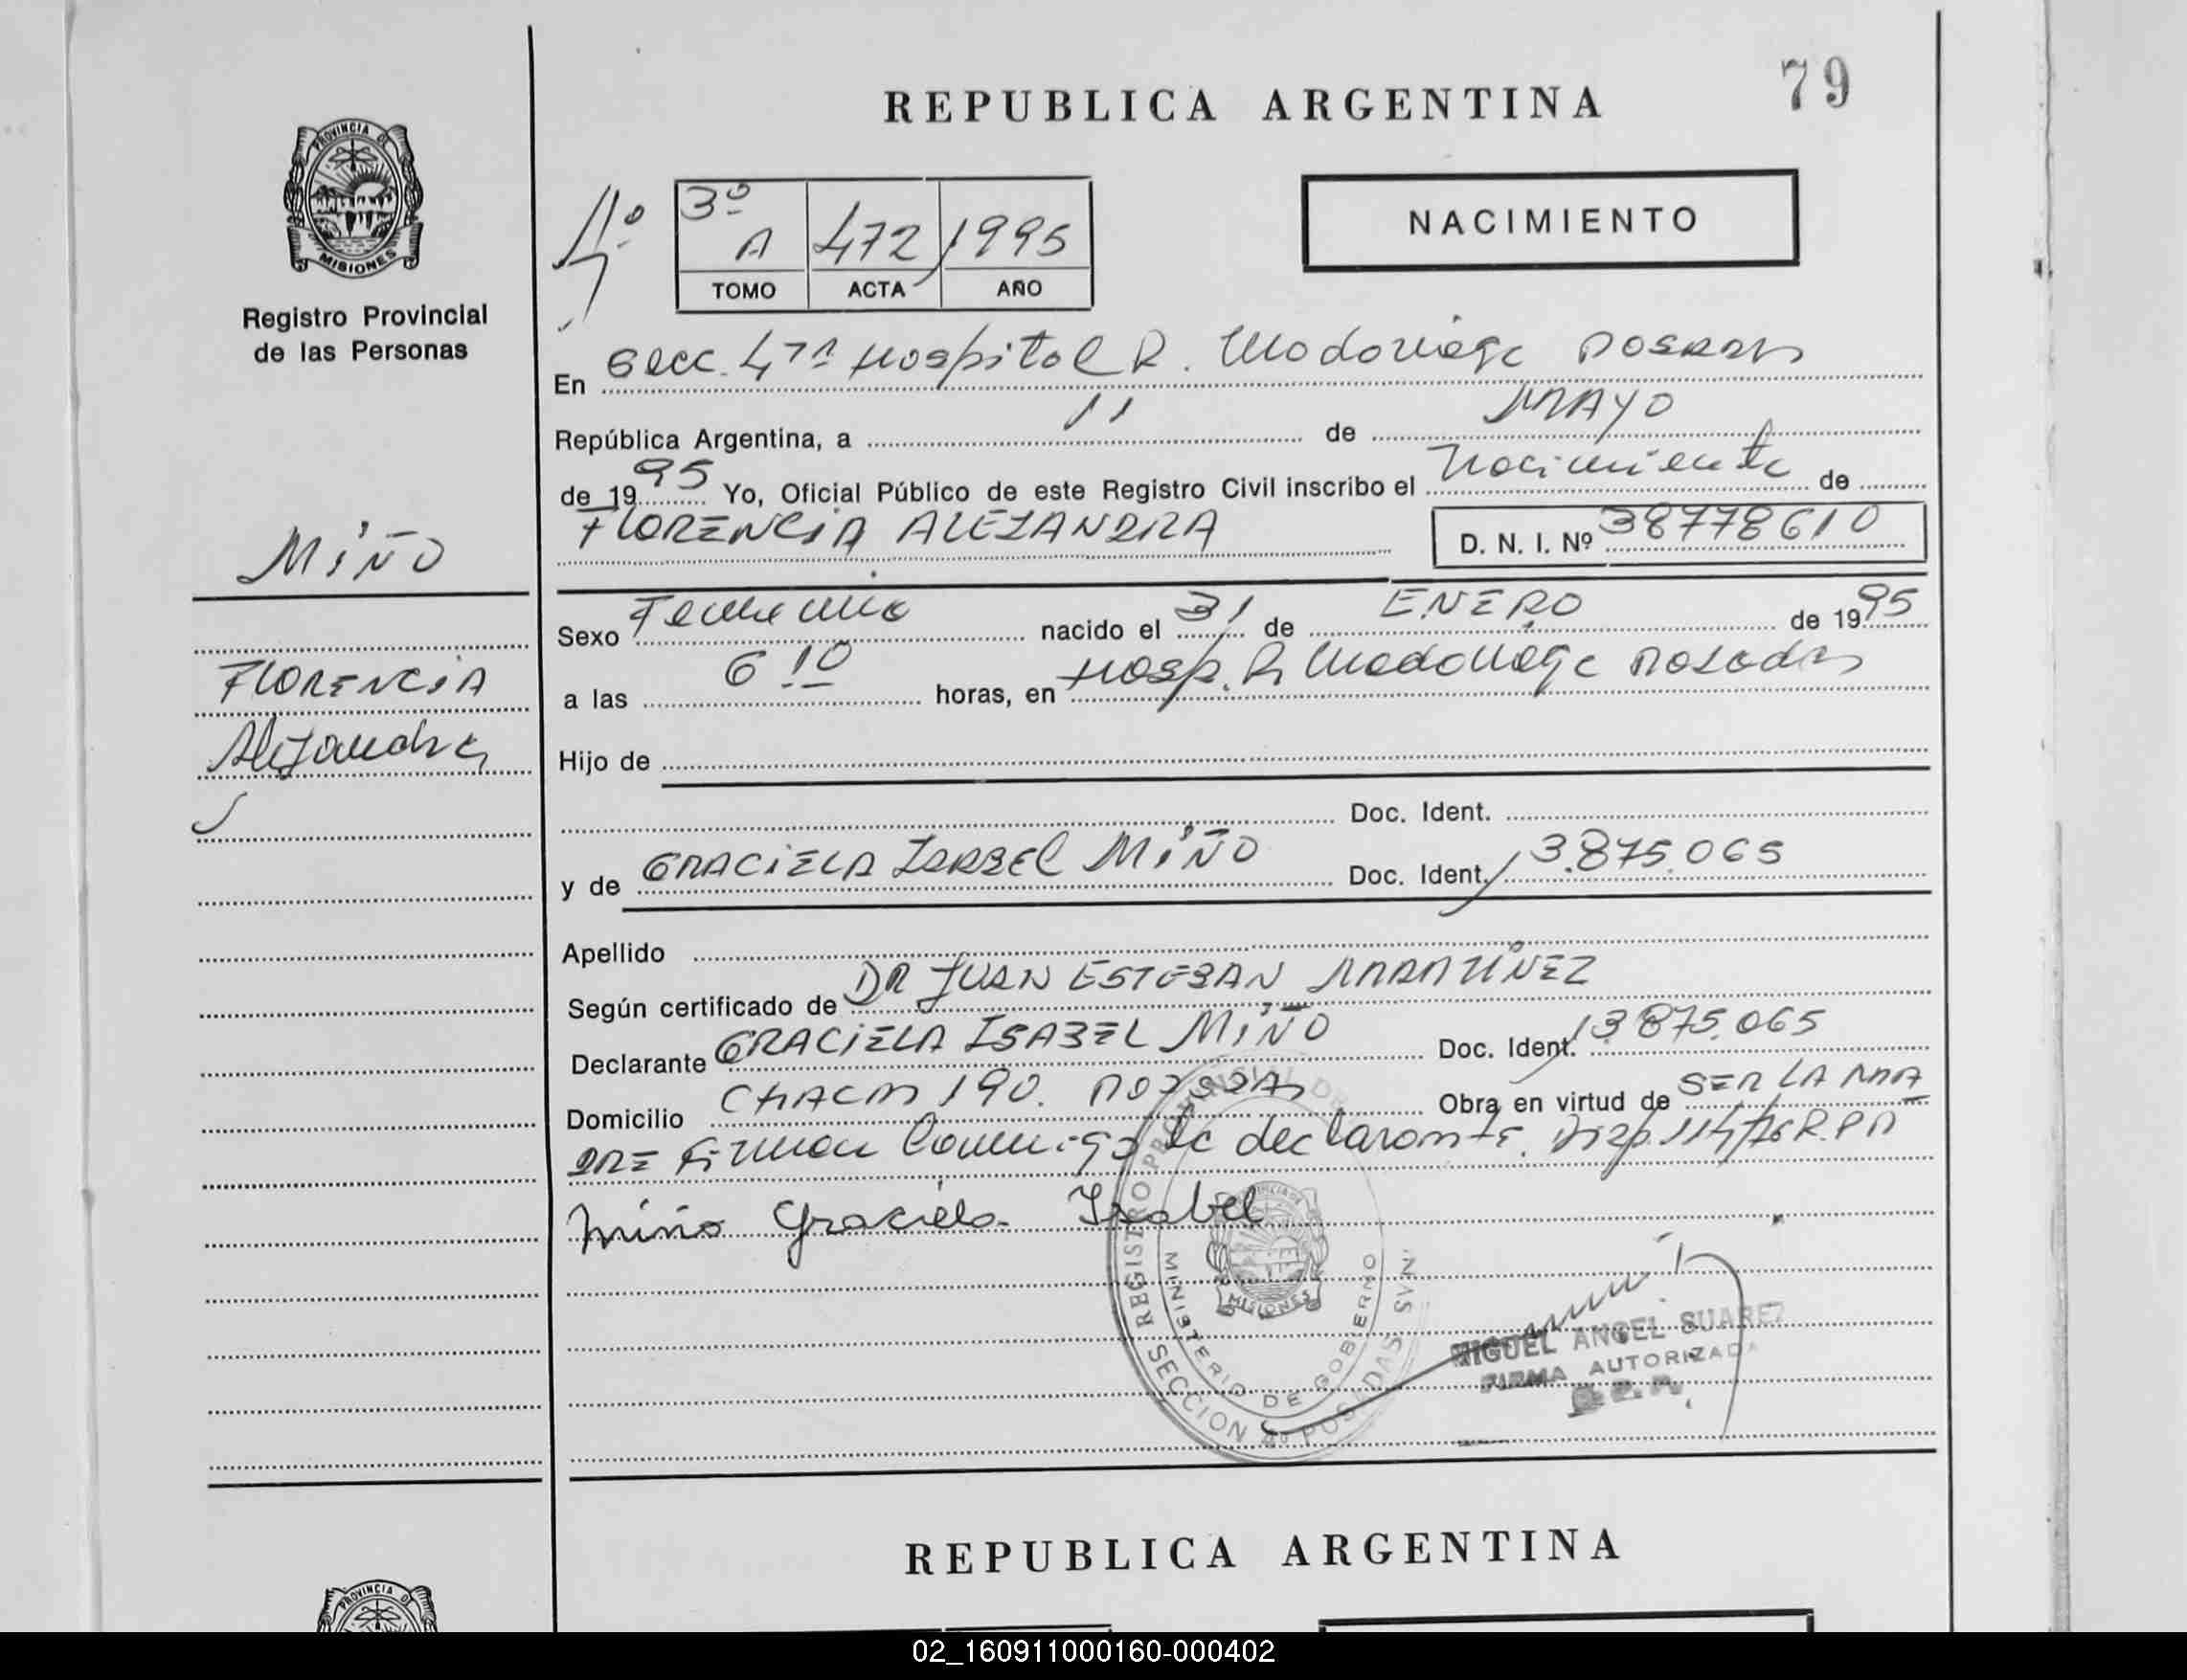 REPUBLICA ARGENTINA
79
PROVINCIA DE
MISIONES
Registro Provincial
de las Personas
4º
3º A 472 1995
TOMO ACTA AÑO
NACIMIENTO
En Secc. 4ta Hospital R. Madariaga Posadas
República Argentina, a 11 de MAYO
de 1995 Yo, Oficial Público de este Registro Civil inscribo el Nacimiento de
FLORENCIA ALEJANDRA D. N. I. Nº 38778610
MIÑO
FLORENCIA
Alejandra
Sexo Femenino nacido el 31 de ENERO de 1995
a las 6 10 horas, en Hosp. R. Madariaga Posadas
Hijo de
Doc. Ident.
y de GRACIELA ISABEL MIÑO Doc. Ident. 13.875.065
Apellido
Según certificado de DR JUAN ESTEBAN MARTINEZ
Declarante GRACIELA ISABEL MIÑO Doc. Ident. 13.875.065
Domicilio CHACO 190. POSADAS Obra en virtud de SER LA MA
DRE firman conmigo la declarante. Disp. 114/76 R.P.P
Miño Graciela Isabel
REGISTRO PROVINCIAL DE
SECCION 4º POSADAS
MINISTERIO DE GOBIERNO
MISIONES
MIGUEL ANGEL SUAREZ
FIRMA AUTORIZADA
REPUBLICA ARGENTINA
PROVINCIA D
02_160911000160-000402